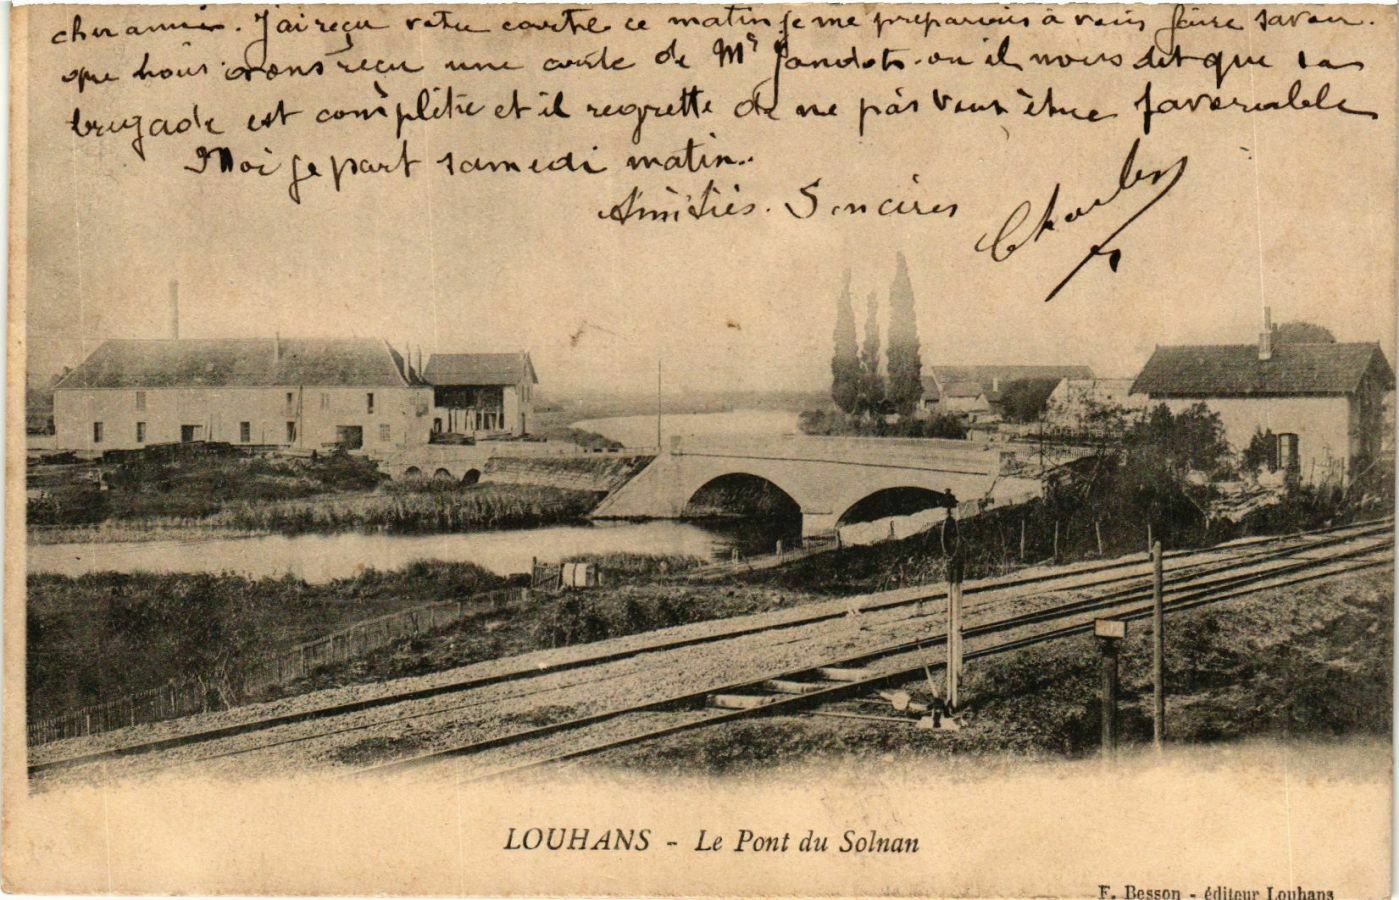 cher ami. J'ai reçu votre carte ce matin je me preparais à vous faire savoir.
que nous avons reçu une carte de Mr Jandot. ou il nous dit que sa
brigade est complètte et il regrette de ne pas vous être favorable
Moi je part samedi matin..
Amitiés. Sincères
Charles
LOUHANS - Le Pont du Solnan
F. Besson - éditeur Louhans